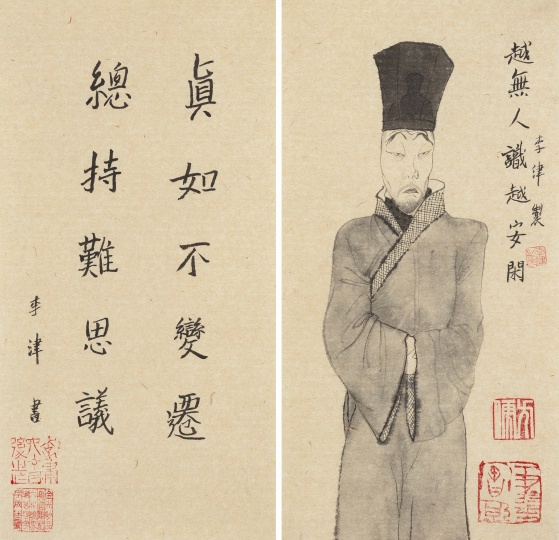 眞如不變遷
總持難思議
李津書
越無人識越安閑
李津製